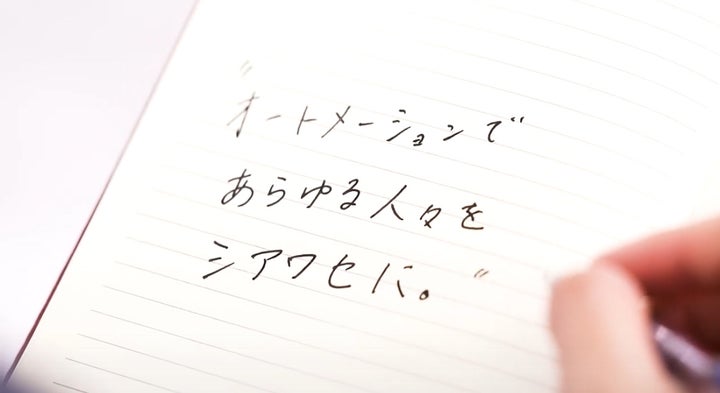 "オートメーションで
あらゆる人々を
シアワセに。"